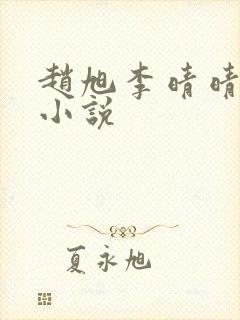 趙旭李晴晴
小説
夏永旭